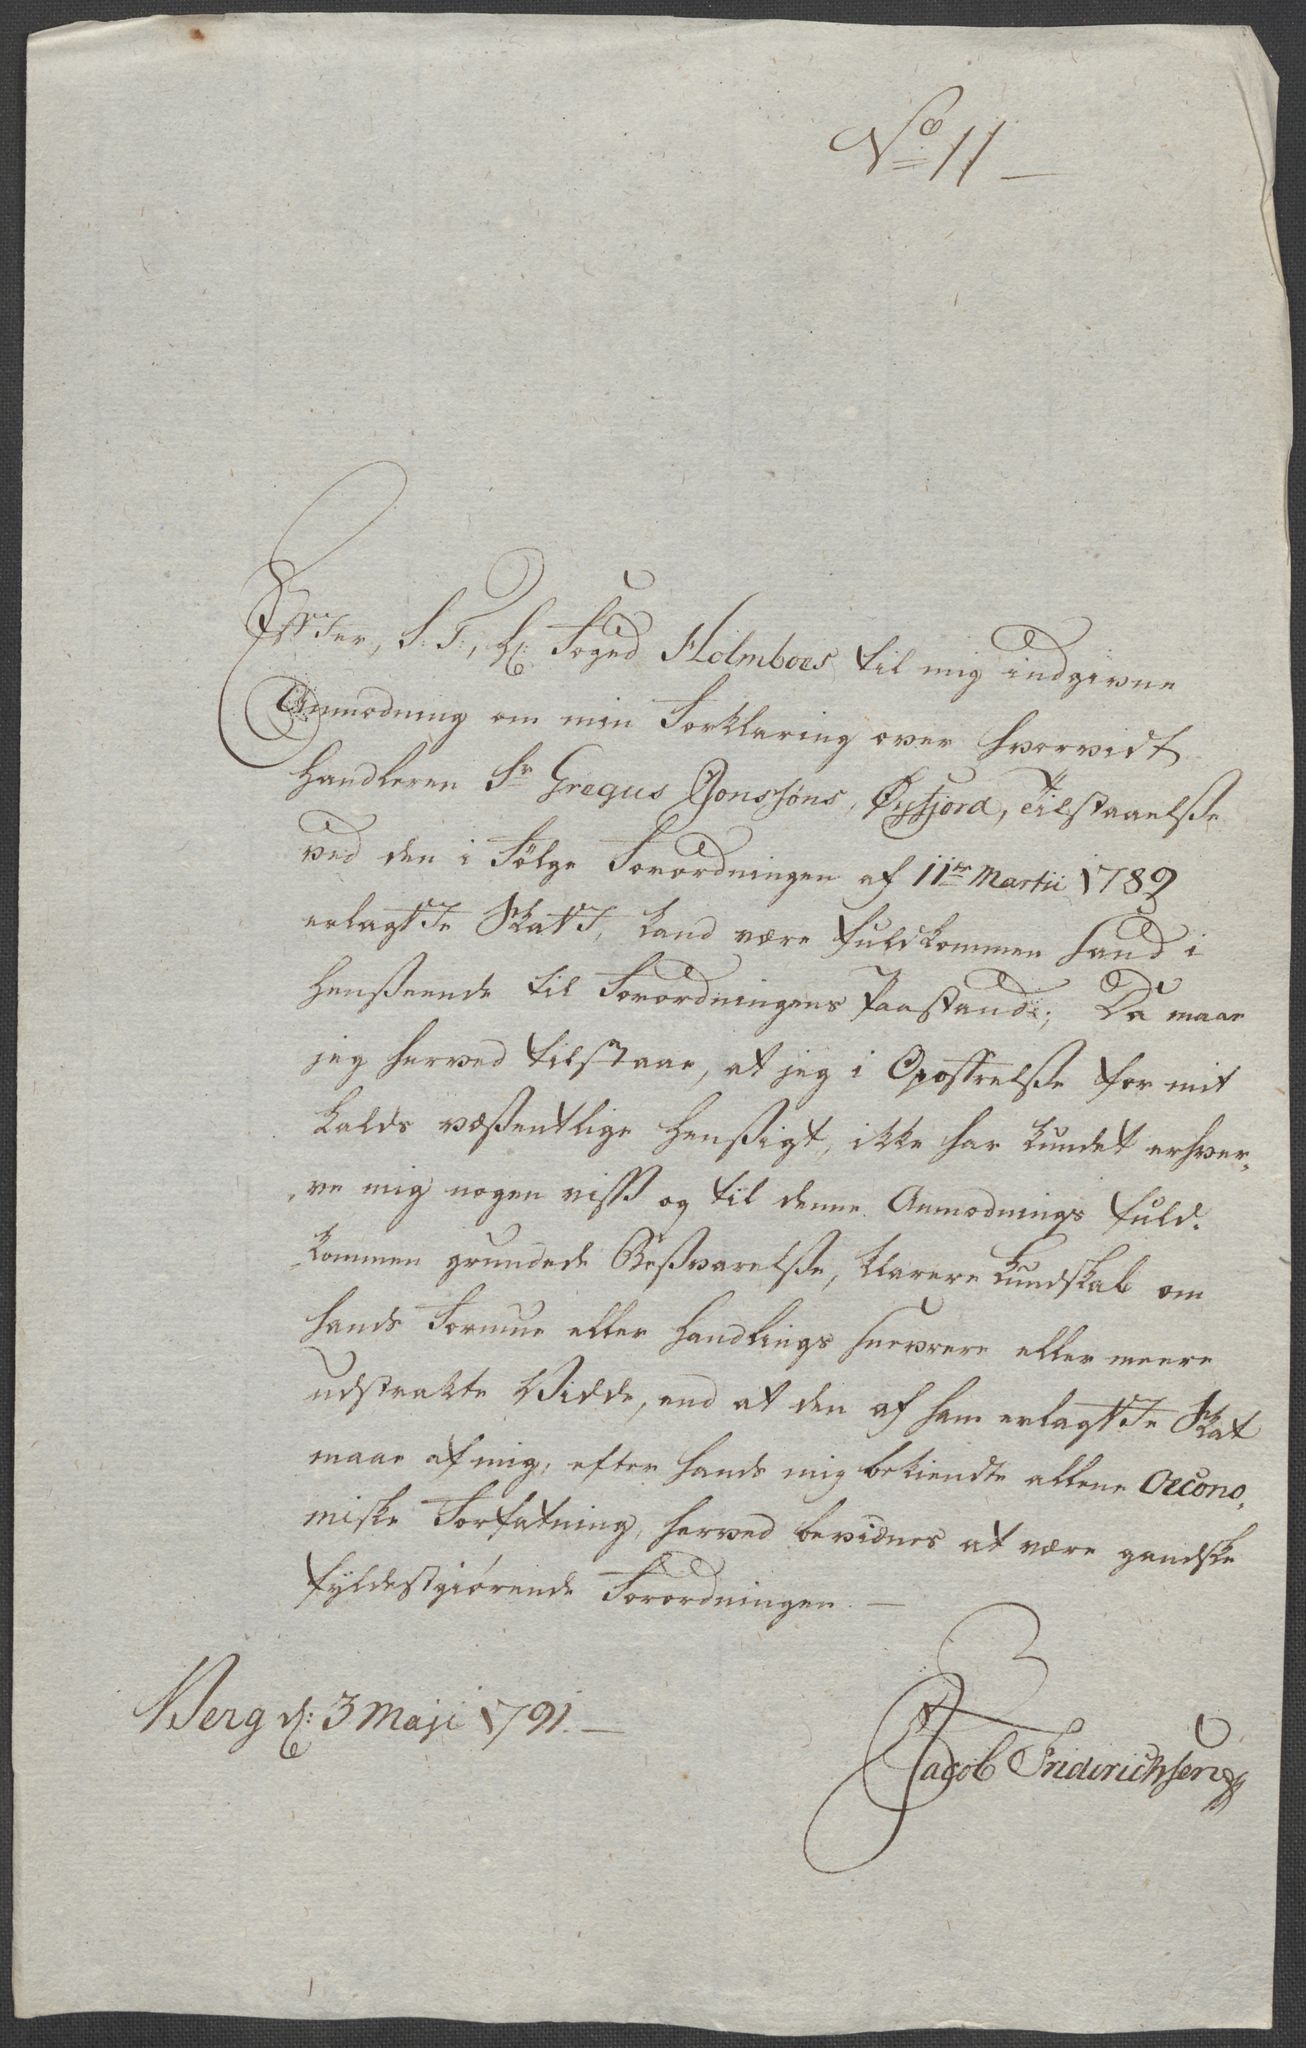 No 11
Effter, S: T:, Hr: Foged Holmboes til mig indgivne
Anmodning om min Forklaring over hvorvidt
Handleren Sr Gregus Jonssöns, Øyfjord, Tilstaaelsse
ved den i Fölge Forordningen af 11te Martii 1789
erlagtte Skatt, kand være fuldkommen sand i
Hensseende til Forordningens Paastand; Da maae
jeg herved tilstaae, at jeg i Opoffrelsse for mit
Kalds væssentlige Henssigt, ikke har kundet erhver-
ve mig nogen viss og til denne Anmodnings fuld-
kommen grundede Bessvarelsse, klarere Kundskab om
hands Formue eller Handlings snevrere eller meere
udstrakte Vidde, end at den af ham erlagtte Skat
maae af mig, efter hands mig bekiendte allene Oecono-
miske Forfatning, herved bevidnes at være gandske
fyldestgiörende Forordningen. —
Berg d: 3 Maji 1791. —
Jacob Friderichsen